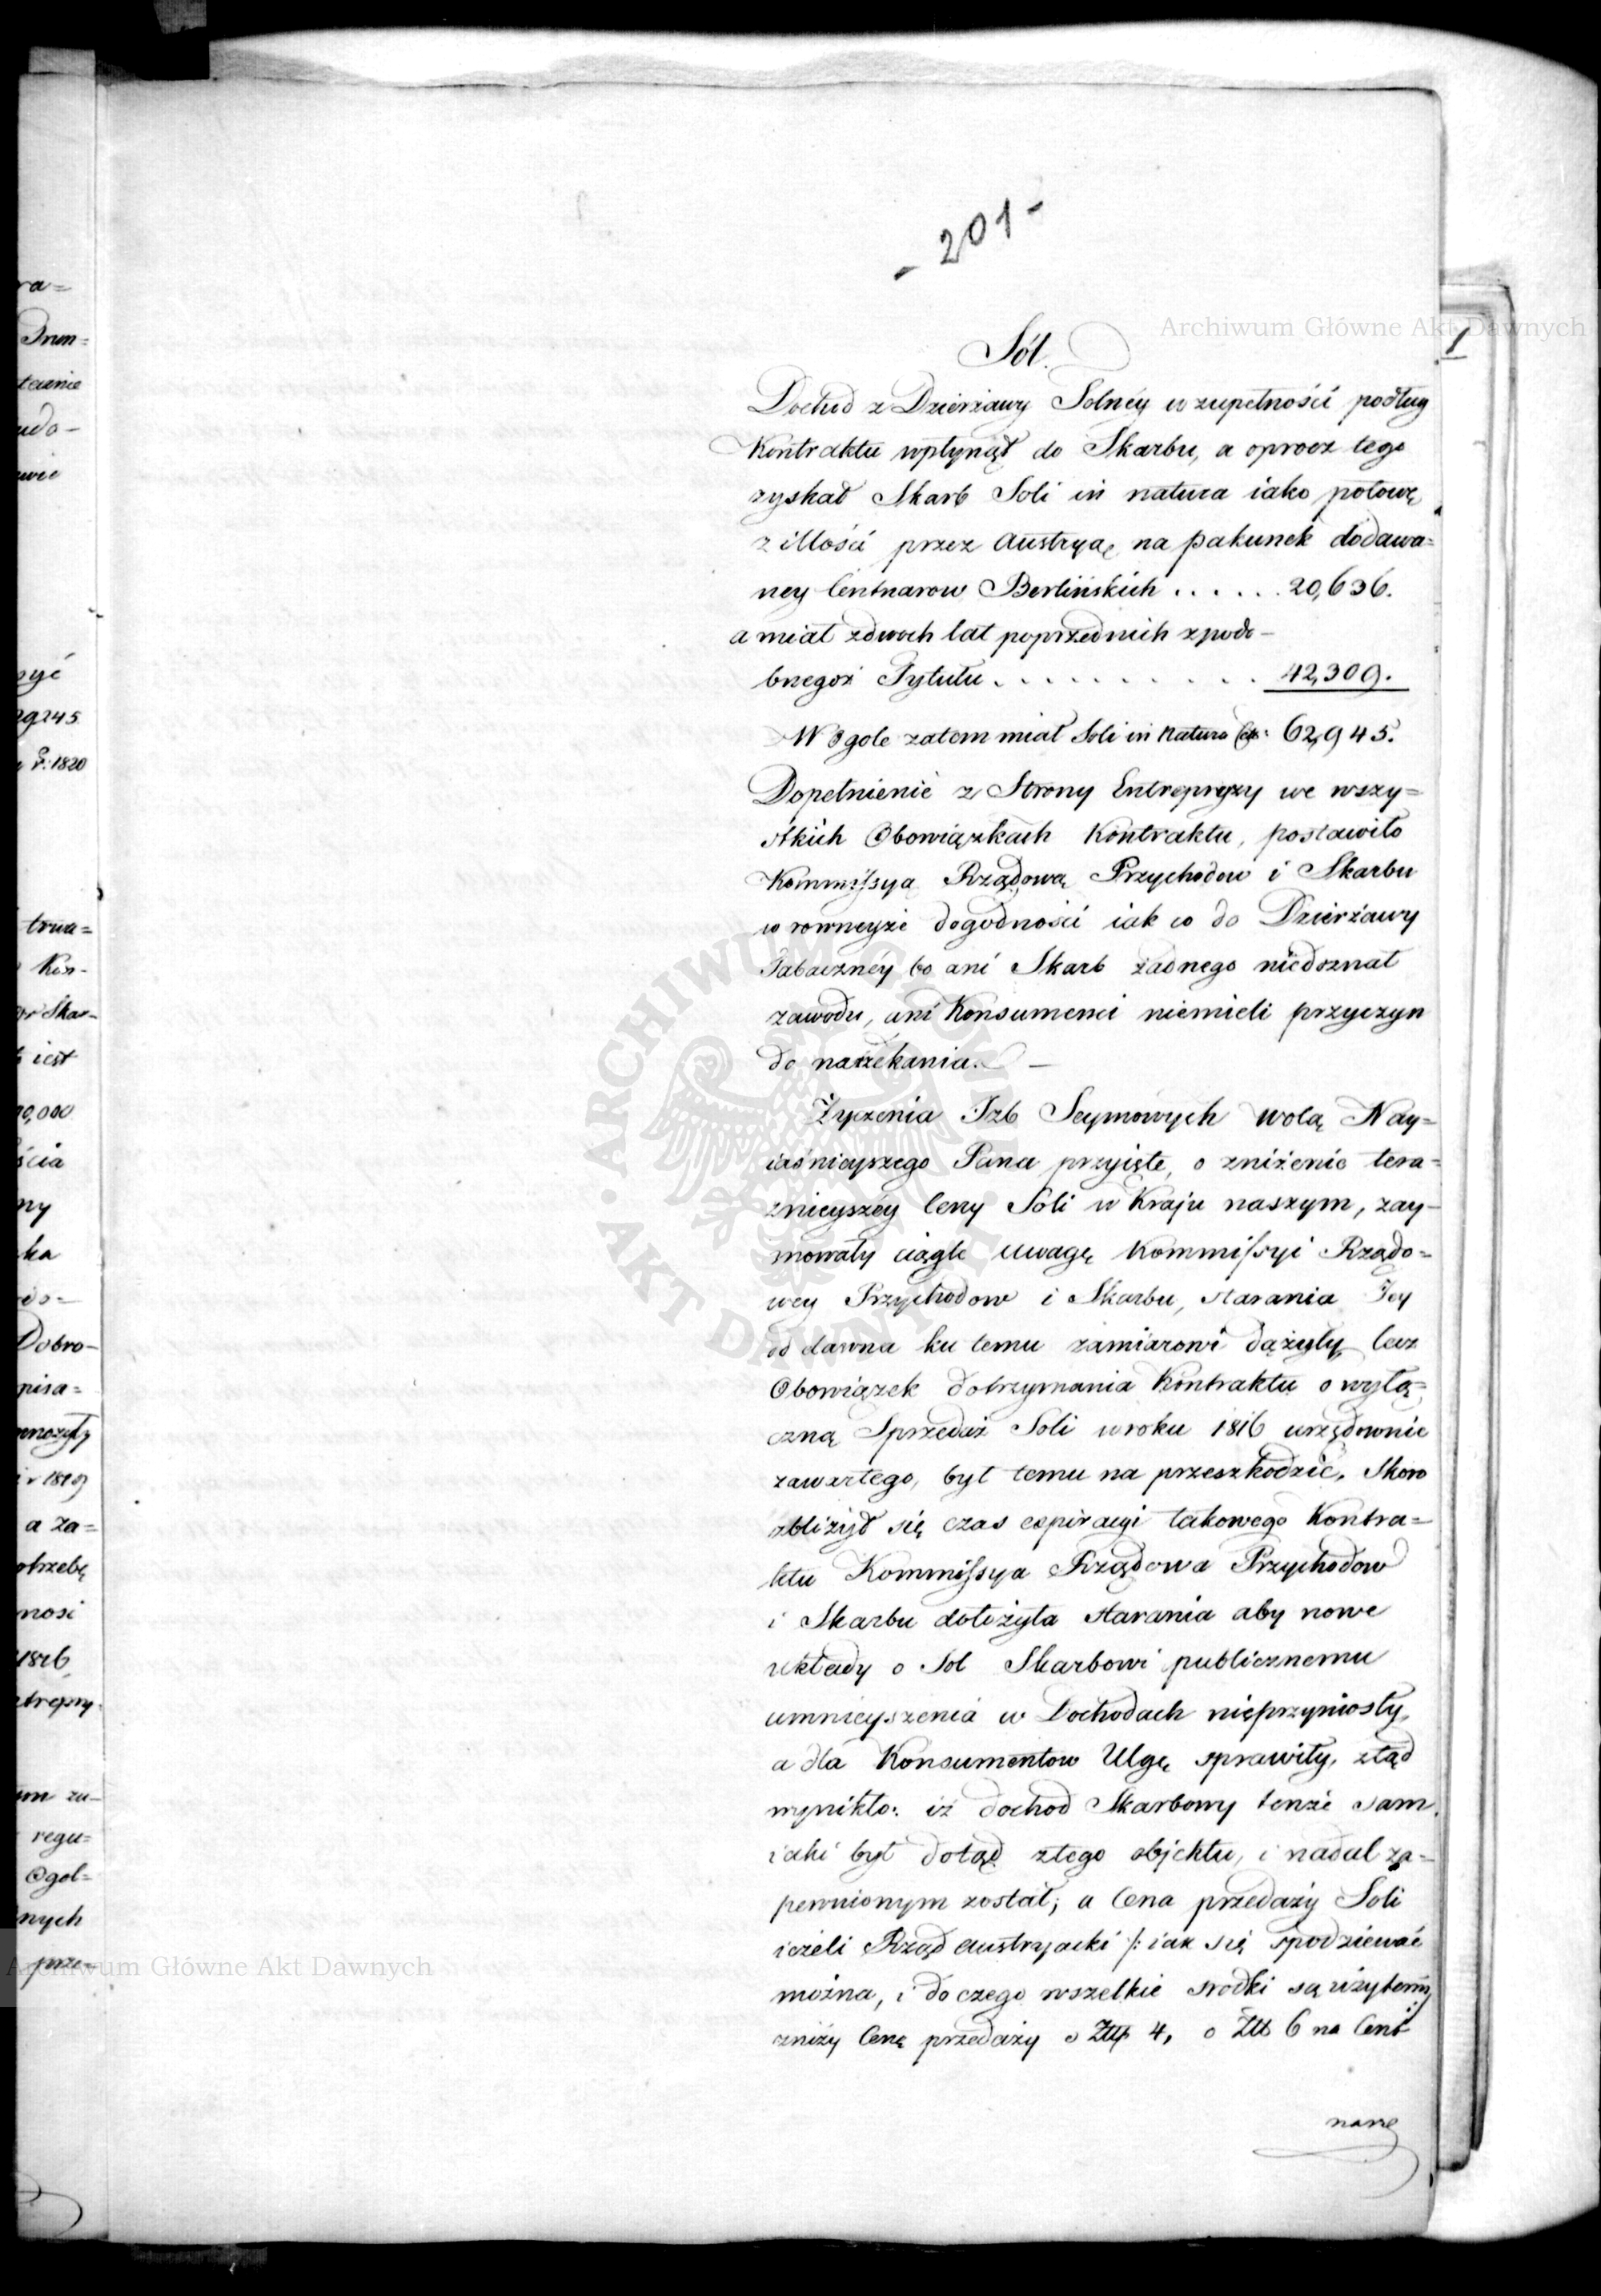 - 201 -
1
Sól.
Dochod z Dzierżawy Solnéy w zupełności podług
Kontraktu wpłynął do Skarbu, a oprocz tego
zyskał Skarb Soli in natura iako połowę
z illości przez Austryą na pakunek dodawa=
ney Centnarow Berlińskich . . . . . . 20,636.
a miał zdwoch lat poprzednich zpodo-
bnegoż Tytułu . . . . . . . . . . 42,309.
W Ogole zatem miał Soli in Natura 62,945.
Dopełnienie z Strony Entrepryzy we wszy=
stkich Obowiązkach Kontraktu, postawiło
Kommissyą Rządową Przychodow i Skarbu
w rowneyże dogodności iak co do Dzierżawy
Tabacznéy bo ani Skarb żadnego niedoznał
zawodu, ani Konsumenci niemieli przyczyn
do narzekania. —
Życzenia Izb Seymowych wolą Nay=
iaśnieyszego Pana przyięte, o zniżenie tera=
znieyszéy Ceny Soli w Kraju naszym, zay-
mowały ciągle uwagę Kommissyi Rządo=
wey Przychodow i Skarbu, starania Jey
od dawna ku temu zamiarowi dążyły, lecz
Obowiązek dotrzymania Kontraktu o wyłą=
czną Sprzedaż Soli w roku 1816 urzędownie
zawartego, był temu na przeszkodzie. Skoro
zbliżył się czas expiracyi takowego Kontra=
ktu Kommissya Rządowa Przychodow
i Skarbu dołożyła starania aby nowe
układy o Sol Skarbowi publicznemu
umnieyszenia w Dochodach nieprzyniosły,
a dla Konsumentow Ulgę sprawiły, ztąd
wynikło: iż dochod Skarbowy tenże sam,
iaki był dotąd ztego objektu, i nadal za=
pewnionym został; a Cena przedaży Soli
ieżeli Rząd Austryacki /: iak się spodziewać
można, i do czego wszelkie srodki są użytemi :/
zniży Cenę przedaży o Złłp 4, o Złł 6 na Cent